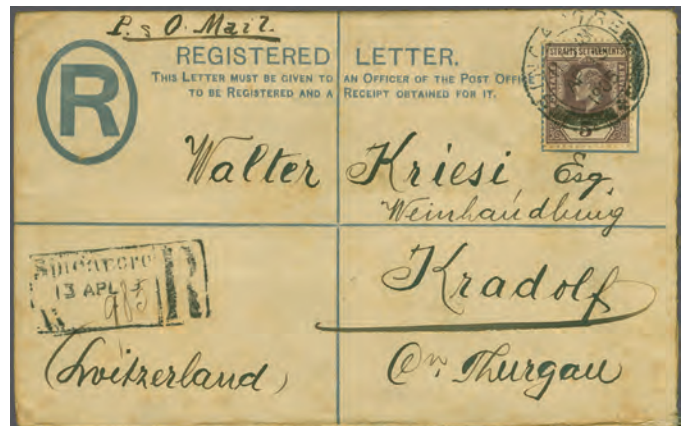 P. & O. Mail.
R
REGISTERED LETTER.
THIS LETTER MUST BE GIVEN TO AN OFFICER OF THE POST OFFICE
TO BE REGISTERED AND A RECEIPT OBTAINED FOR IT.
STRAITS SETTLEMENTS
Walter Kriesi Esq.
Weinhandlung
Singapore R
13 APL
985
Kradolf
(Switzerland)
Ct. Thurgau